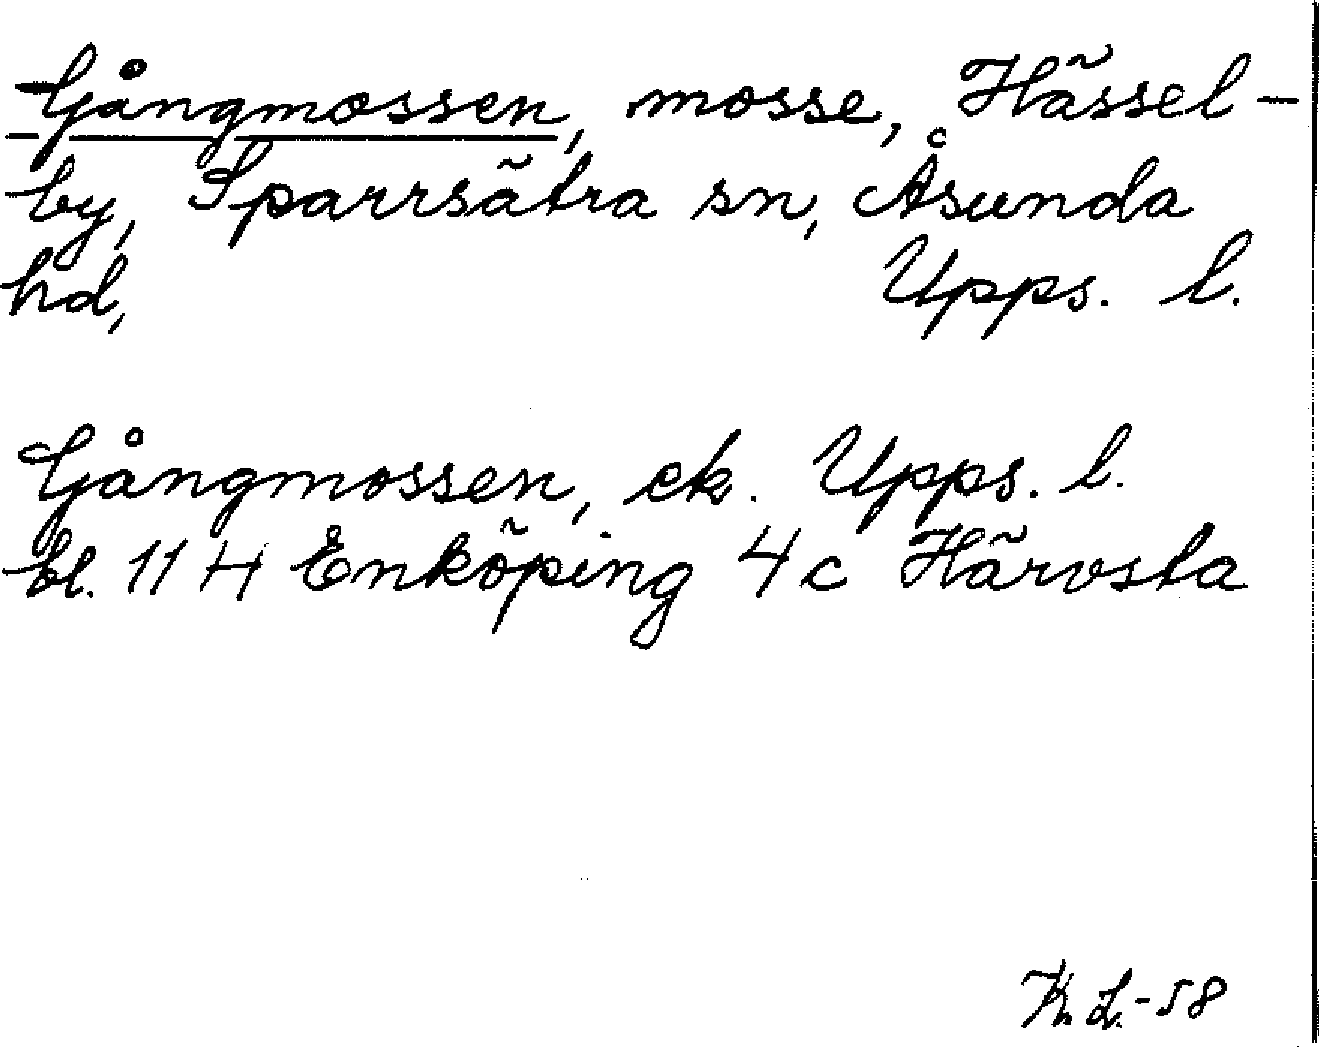 Gångmossen, mosse, Hässel-
by, Sparrsätra sn, Åsunda
hd, Upps. l.
Gångmossen, ek. Upps. l.
bl. 11 H Enköping 4 c Härvsta
K. L. -58